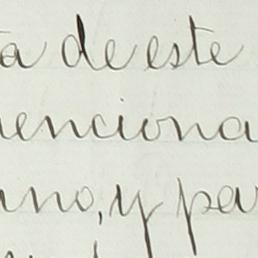 ta de este
menciona
ano, y par